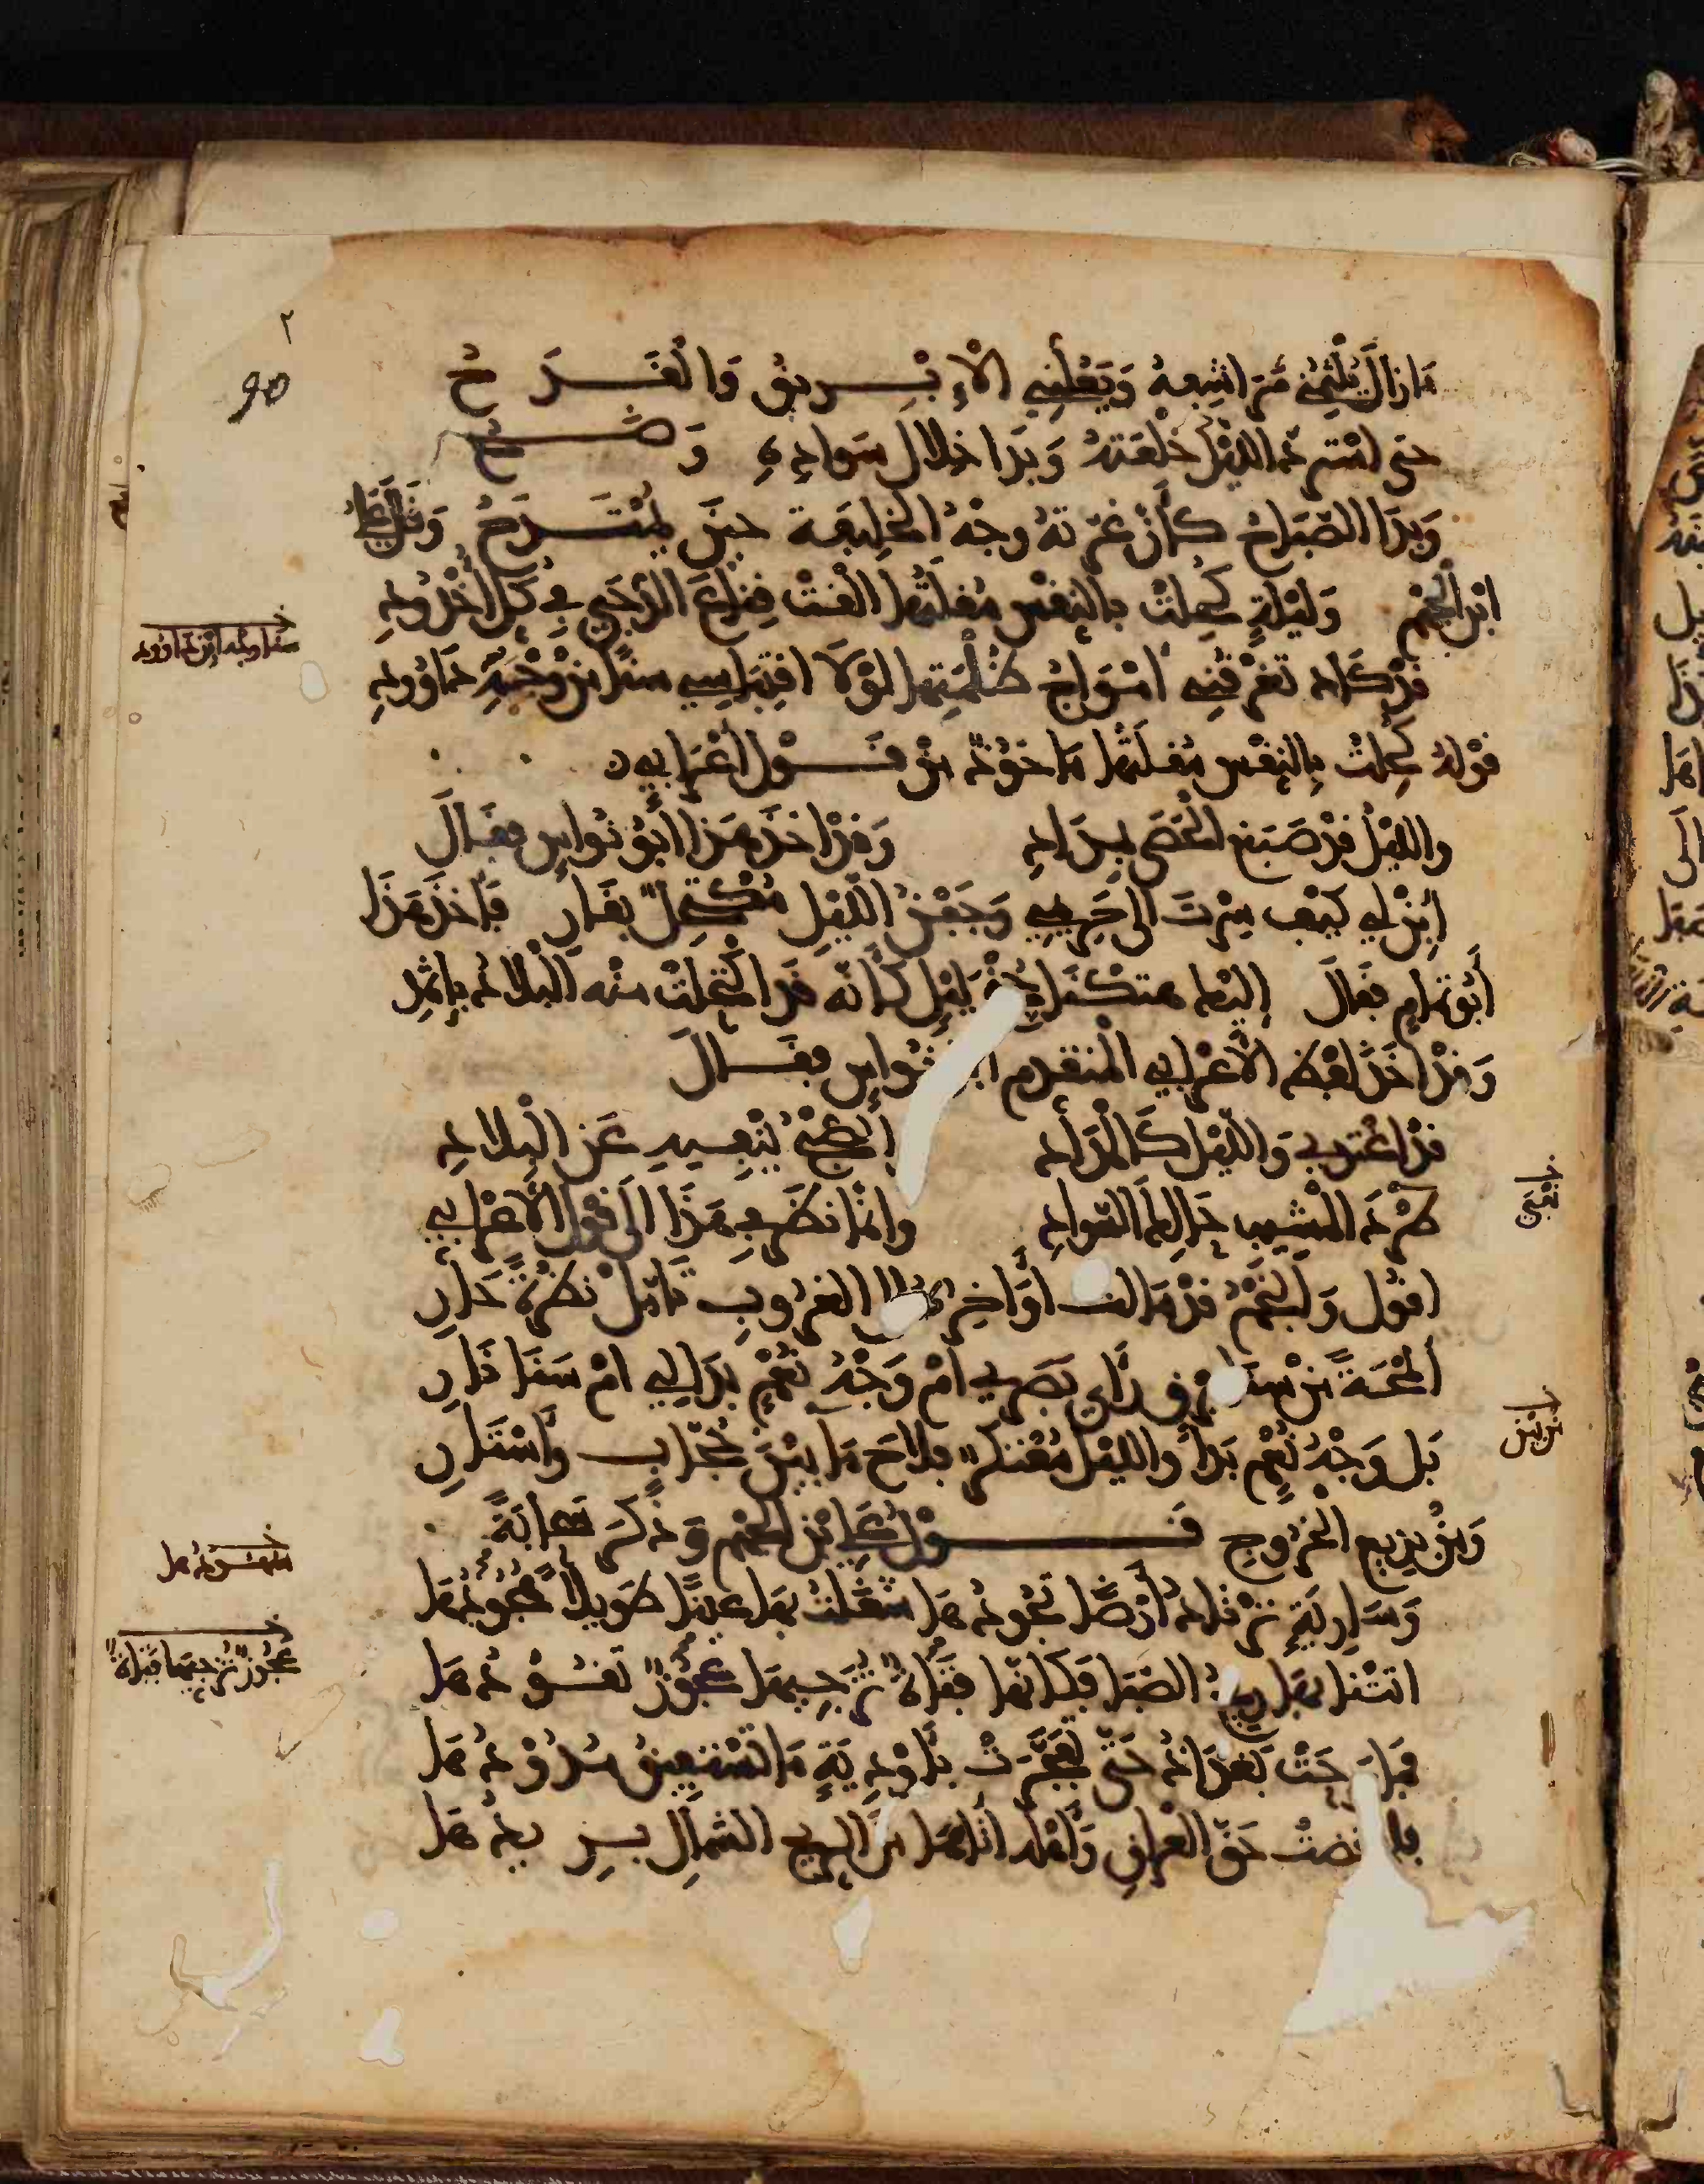 ٢
90
مَا زالَ يُلْثِمُني مَرَاشِفهُ وَيَعُلّني الإبْـريقُ وَالقَـدَحُ
حتى اسْتَردّ الليْلُ خلْعَتهُ وَبَدَا خِلالَ سَوادِهِ وَضَـحُ
وَبَدَا الصّبَاحُ كأنّ غرّتهُ وجْهُ الخليفة حينَ يُمْتَدَحُ وَقالَ عليّ
ابن الجهْم وَلَيْلَةٍ كُحِلتْ بالنِقْسِ مُقلَتُها ألقَتْ قِناعَ الدّجَى في كلّ أخْدُودِ
قدْ كادَ تغْرِقُني أمْوَاجُ ظُلْمَتِها لَوْلا اقتِبَاسي سنًا منْ وَجْهِ دَاوُودِ
خ سنا وجه ابن داوود
قوْلهُ كُحِلتْ بِالنِقْسِ مُقلَتُها مَاخوُذٌ منْ قَـوْل أعْرَابي
والليْلُ قدْ صَبَغ الحَصَى بمِدَادِ وَقدْ أخذَ هَذا أبُو نُواسٍ فقَالَ
أبِنْ لي كيْف سِرْتَ إلى حَريمي وَجَفْنُ الليْلِ مُكْتَحِلٌ بقَارِ فأخذَ هَذَا
أبُو تمامٍ فقالَ إليْكَ هتكْنا جُنْحَ لَيْلٍ كأنّه قَدِ اكْتحَلَتْ منْه البْلادُ بإثْمِدِ
وَقدْ أخَذَ لفْظَ الأعْرابي المتقدّم أبو نُواسٍ فقَـالَ
قدْ أغْتدي وَالليْلُ كَالمِدَادِ
طرْدَ المَشيبِ حَالِكَ السّوادِ وإنّما نظَرَ في هَذَا إلَى قولِ الأعْرابي
أقُول وَالنجْمُ قدْ مَالت أوَاخِرهُ إلى الغرُوبِ تأمّلْ نظْرةً حَارِ
ألمْحَةٌ منْ سنَا برْقٍ رَأى بَصَرِي أمْ وَجْهُ نُعْمٍ بَدَا لي أمْ سَنَا نَارِ
بَل وَجْهُ نُعْمٍ بَدَا والليْلُ مُعْتكرٌ فلاحَ مَا بيْنَ حُجّابٍ وأسْتَارِ
خ من بين
وَمنْ بديع الخرُوجِ قَـوْلُ عليّ ابْنِ الجهْم وَذكَرَ سَحَابَةً
وَسَارِيَةٍ ترْتَادُ أرْضًا تجُودُهَا شَغَلْتُ بهَا عينًا طَويلاً هُجُودُهَا
أتتْنا بهَا ريحُ الصّبَا فَكأنّهَا فَتَاةٌ تُزَجّيهَا عجُوزٌ تَقُـودُهَا
خ عجُوزٌ تُزجّيهَا فَتاةٌ
فمَا بَرِحَتْ بَغدَادُ حَتّى تفجّرَتْ بأوْدِيَةٍ مَا تسْتفيقُ مُدُودُهَا
فلمّا قضتْ حَقّ العِراقِ وَأهْلِه أتاهَا منَ الريحِ الشمالِ بَـرِيدُهَا